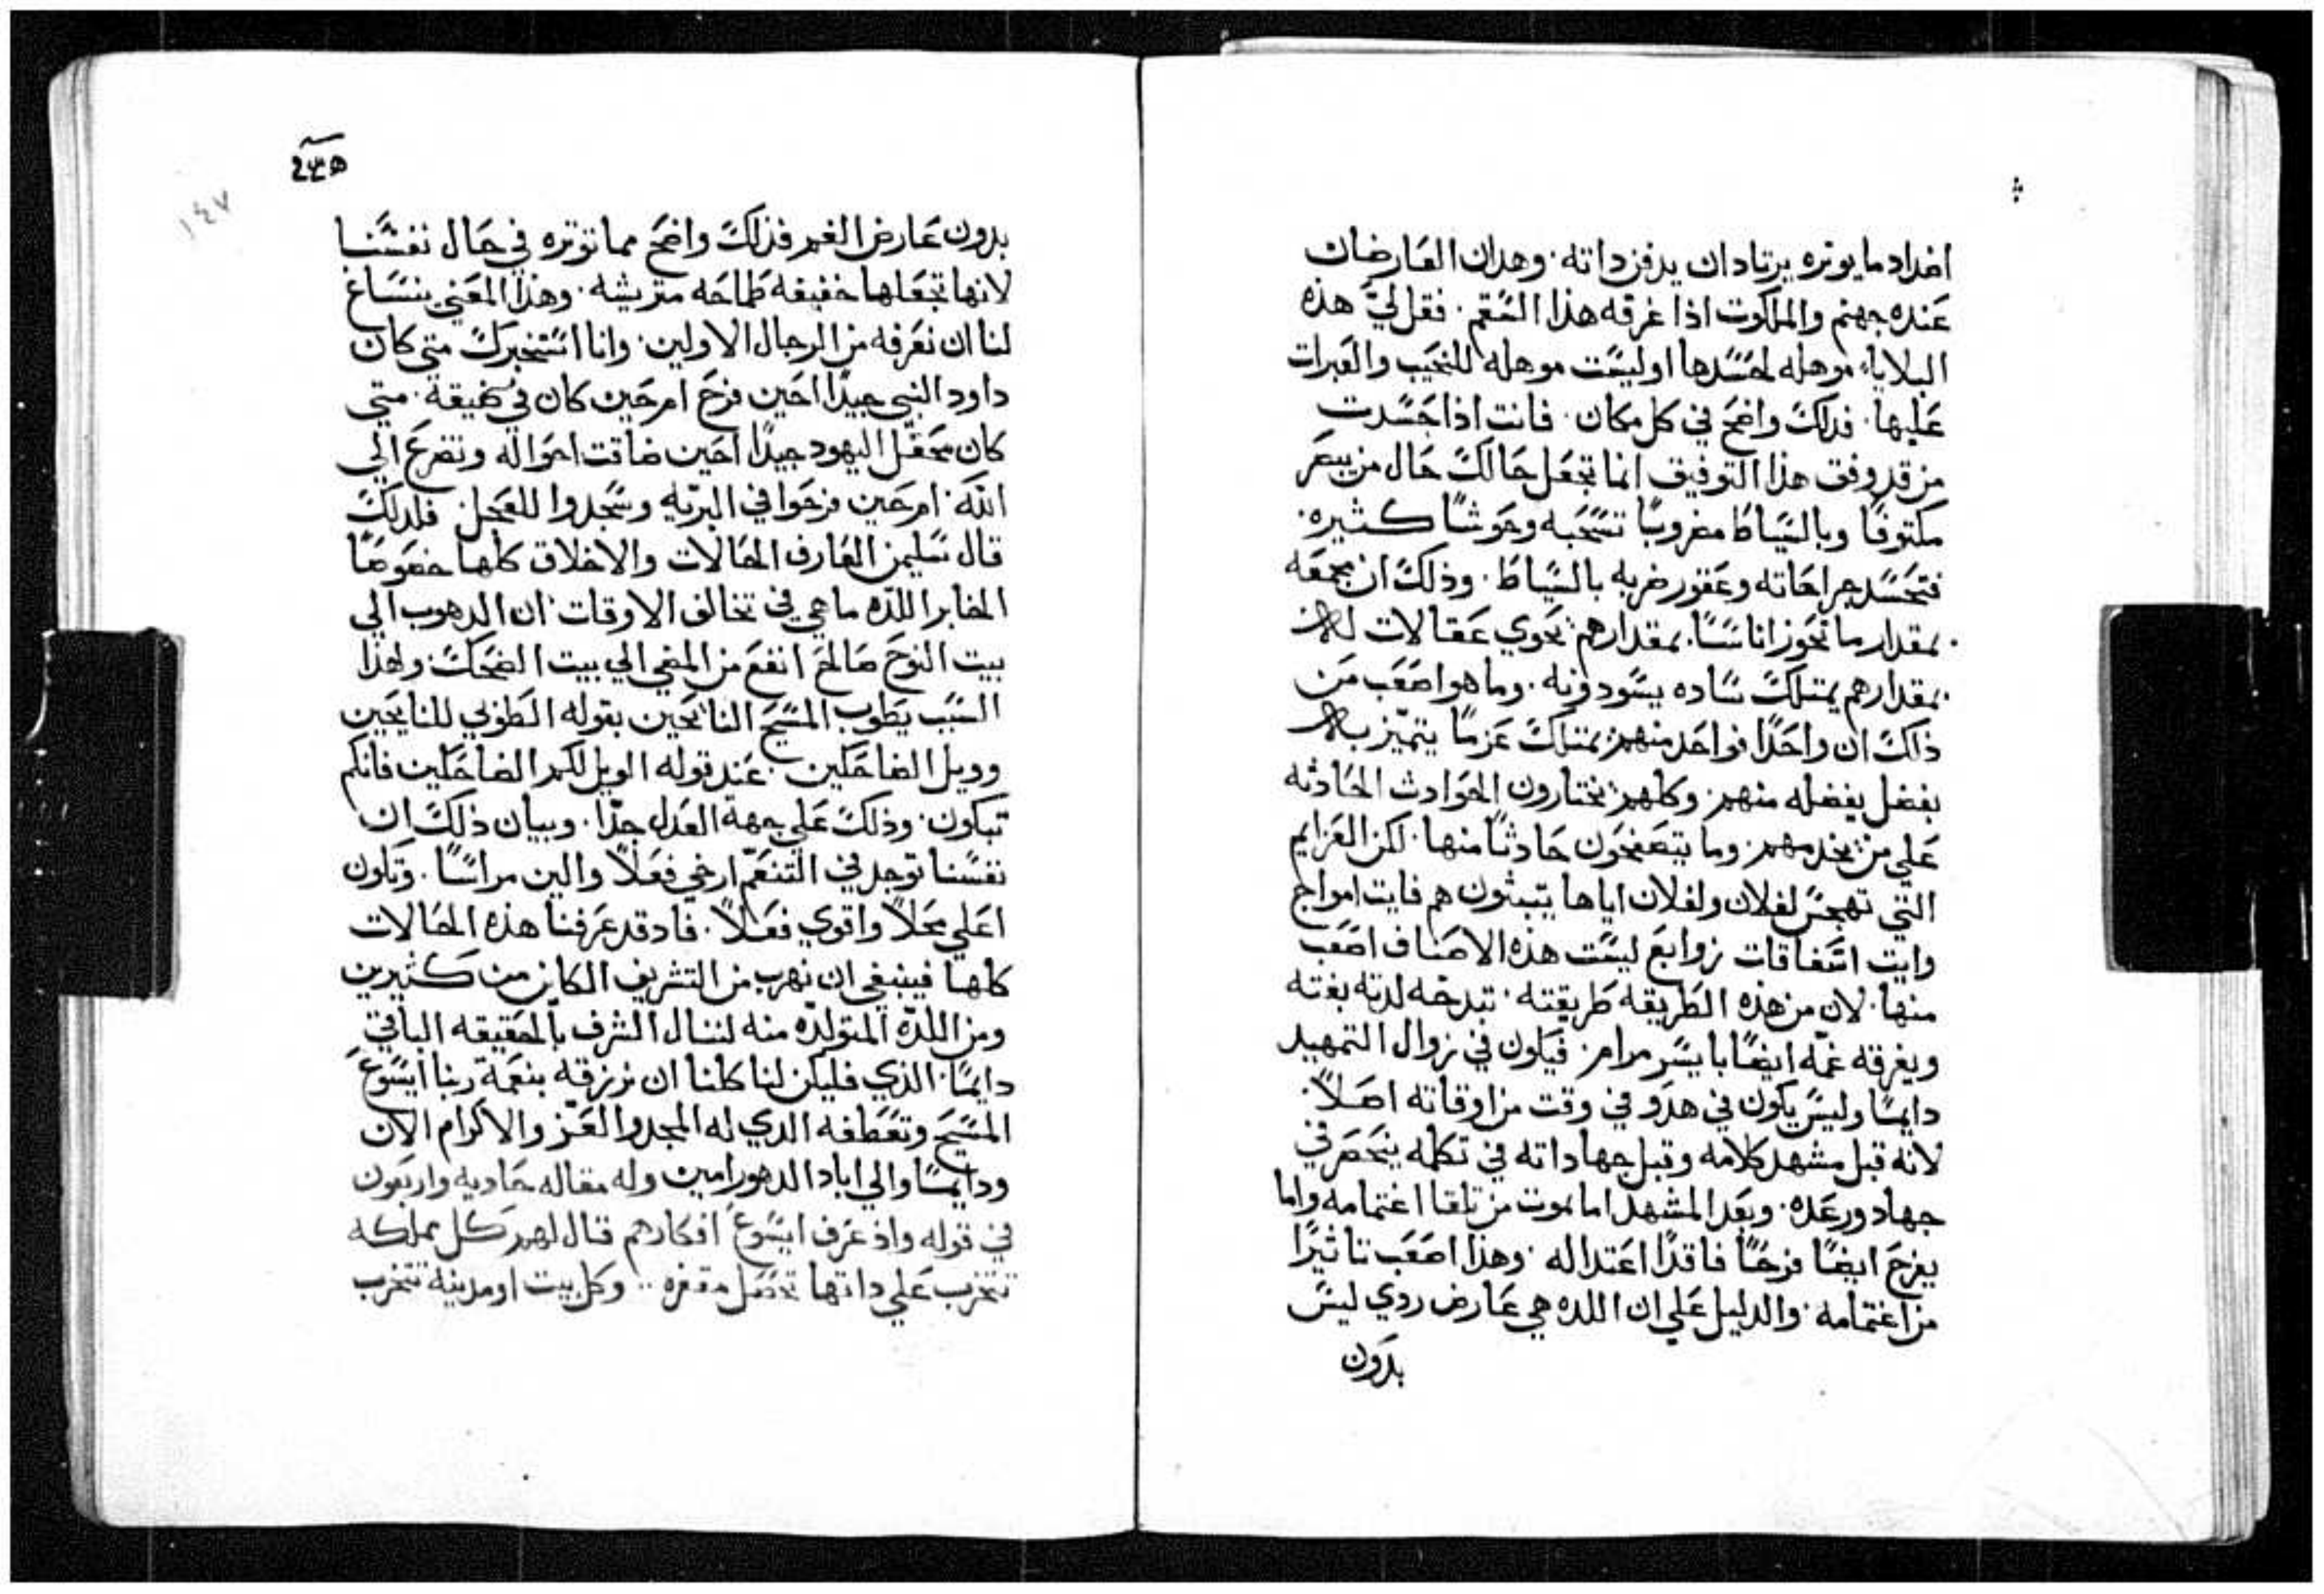 اضداد ما يوثره يرتادان يدفن داته. وهدان العارضان
عنده جهنم والملكوت اذا غرقه هذا السقم. فقل لي هذه
البلايا موهله لحسدها او ليست موهله للنحيب والعبرات
عليها. فدلك واضح في كل مكان. فانت اذا حسدت
من قد وفق هذا التوفيق انما تجعل حالك حال من يبصر
مكتوفًا وبالسياط مضروبًا تسحبه وحوشًا كثيره.
فتحسد جراحاته وعقور ضربه بالسياط. وذلك ان بجمعه
بمقدار ما تحوز اناسًا. بمقدارهم تحوي عقالات
بمقدارهم يمتلك ساده يسودونه. وما هو اصعب من
ذلك ان واحدًا فواحد منهم يمتلك عزمًا يتميز به
بفضل يفضله منهم. وكلهم يختارون الحوادث الحادثه
علي من يخدمهم. وما يتصفحون حادثًا منها. لكن العزايم
التي تهجس لفلان ولفلان اياها يتبثون هم فايت امواج
وايت اسفاقات زوابع ليست هذه الاصناف اصعب
منها. لان من هذه الطريقه طريقته. تبدخه لدته بغته
ويغرقه غمّه ايضًا بايسر مرام. فيكون في زوال التمهيد
دايمًا وليس يكون في هدو في وقت من اوقاته اصلاً.
لانه قبل مشهد كلامه وقبل جهاداته في تكلمه ينحصر في
جهاد ورعده. وبعد المشهد اما يموت من تلقا اغتمامه واما
يفرح ايضًا فرحًا فاقدًا اعتداله. وهذا اصعب تاثيرًا
من اغتمامه. والدليل علي ان اللده هي عارض ردي ليس
بدون
٢٣٥
١٤٧
بدون عارض الغم فذلك واضح مما توثره في حال نفسنا
لانها تجعلها خفيفه طامحه متريشه. وهذا المعني ينساغ
لنا ان نعرفه من الرجال الاولين. وانا استخبرك متي كان
داود النبي جيدًا احين فرح ام حين كان في ضيقة. متي
كان محفل اليهود جيدًا احين ضاقت احواله وتضرع الي
الله. ام حين فرحوا في البريّه وسجدوا للعجل. فلدلك
قال سليمن العارف الحالات والاخلاق كلها خصوصًا
الخابر اللذه ما هي في تخالف الاوقات ان الدهوب الي
بيت النوح صالح انفع من المضي الي بيت الضحك. ولهذا
السبب يطوب المسيح النائحين بقوله الطوبي للنايحين
وويل الضاحكين. عند قوله الويل لكم الضاحكين فانكم
تبكون. وذلك علي جهة العدل جدًا. وبيان ذلك ان
نفسنا توجد في التنعّم ارخي فعلاً والين مراسًا. وتكون
اعلي محلاً واقوي فعلاً. فاد قد عرفنا هذه الحالات
كلها فينبغي ان نهرب من التشريف الكاين من كثيرين
ومن اللدّه المتولدّه منه لننال الشرف بالحقيقه الباقي
دايمًا. الذي فليكن لنا كلنا ان نرزقه بنعمة ربنا ايسوع
المسيح وتعطفه الدي له المجد والعز والاكرام الان
ودايمًا والي اباد الدهور امين وله مقاله حاديه واربعون
في قوله واذ عرف ايسوع افكارهم قال لهم كل مملكه
تتحزب علي داتها تحصل مقفره .. وكل بيت او مدينه تتحزب